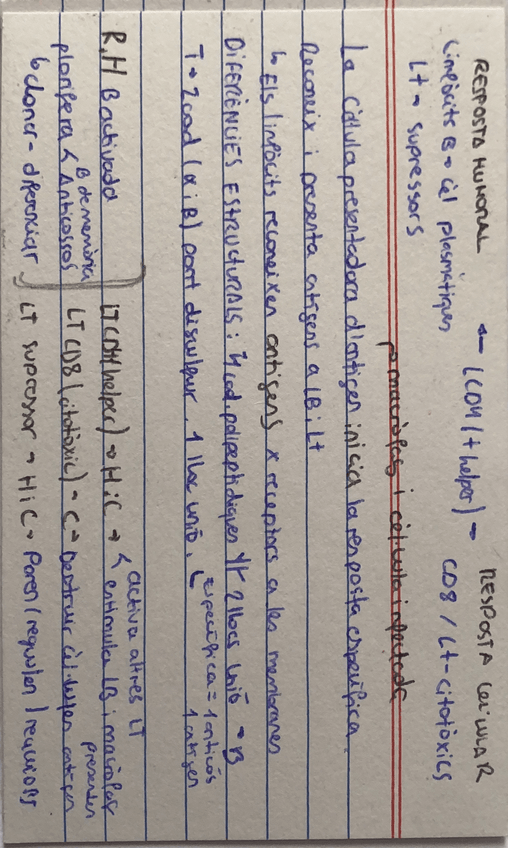 RESPOSTA HUMORAL ← LCD4 (t helper) → RESPOSTA CEL·LULAR
Limfòcits B → cèl plasmàtiques CD8 / Lt - citotòxics
Lt → supressors
→ macròfags i cèl·lula infectada
La cèl·lula presentadora d'antigen inicia la resposta específica.
Reconeix i presenta antigens a LB i Lt
↳ Els limfòcits reconeixen antigens x receptors a les membranes
DIFERÈNCIES ESTRUCTURALS: 4 cad. polipeptídiques Y 2 llocs unió → B
T → 2 cad (α i B) pont disulfur. 1 lloc unió. ↳ específica = 1 anticòs
1 antigen
R.H B activada
prolifera < B de memòria
Anticossos
↳ clonar - diferenciar
LT CD4 (helper) → H i C → < activa altres LT
estimula LB i macròfag
LT CD8 (citotòxic) - C → Destruir cèl·lules presenten antigen
LT supressor → H i C → Paren (regulen)